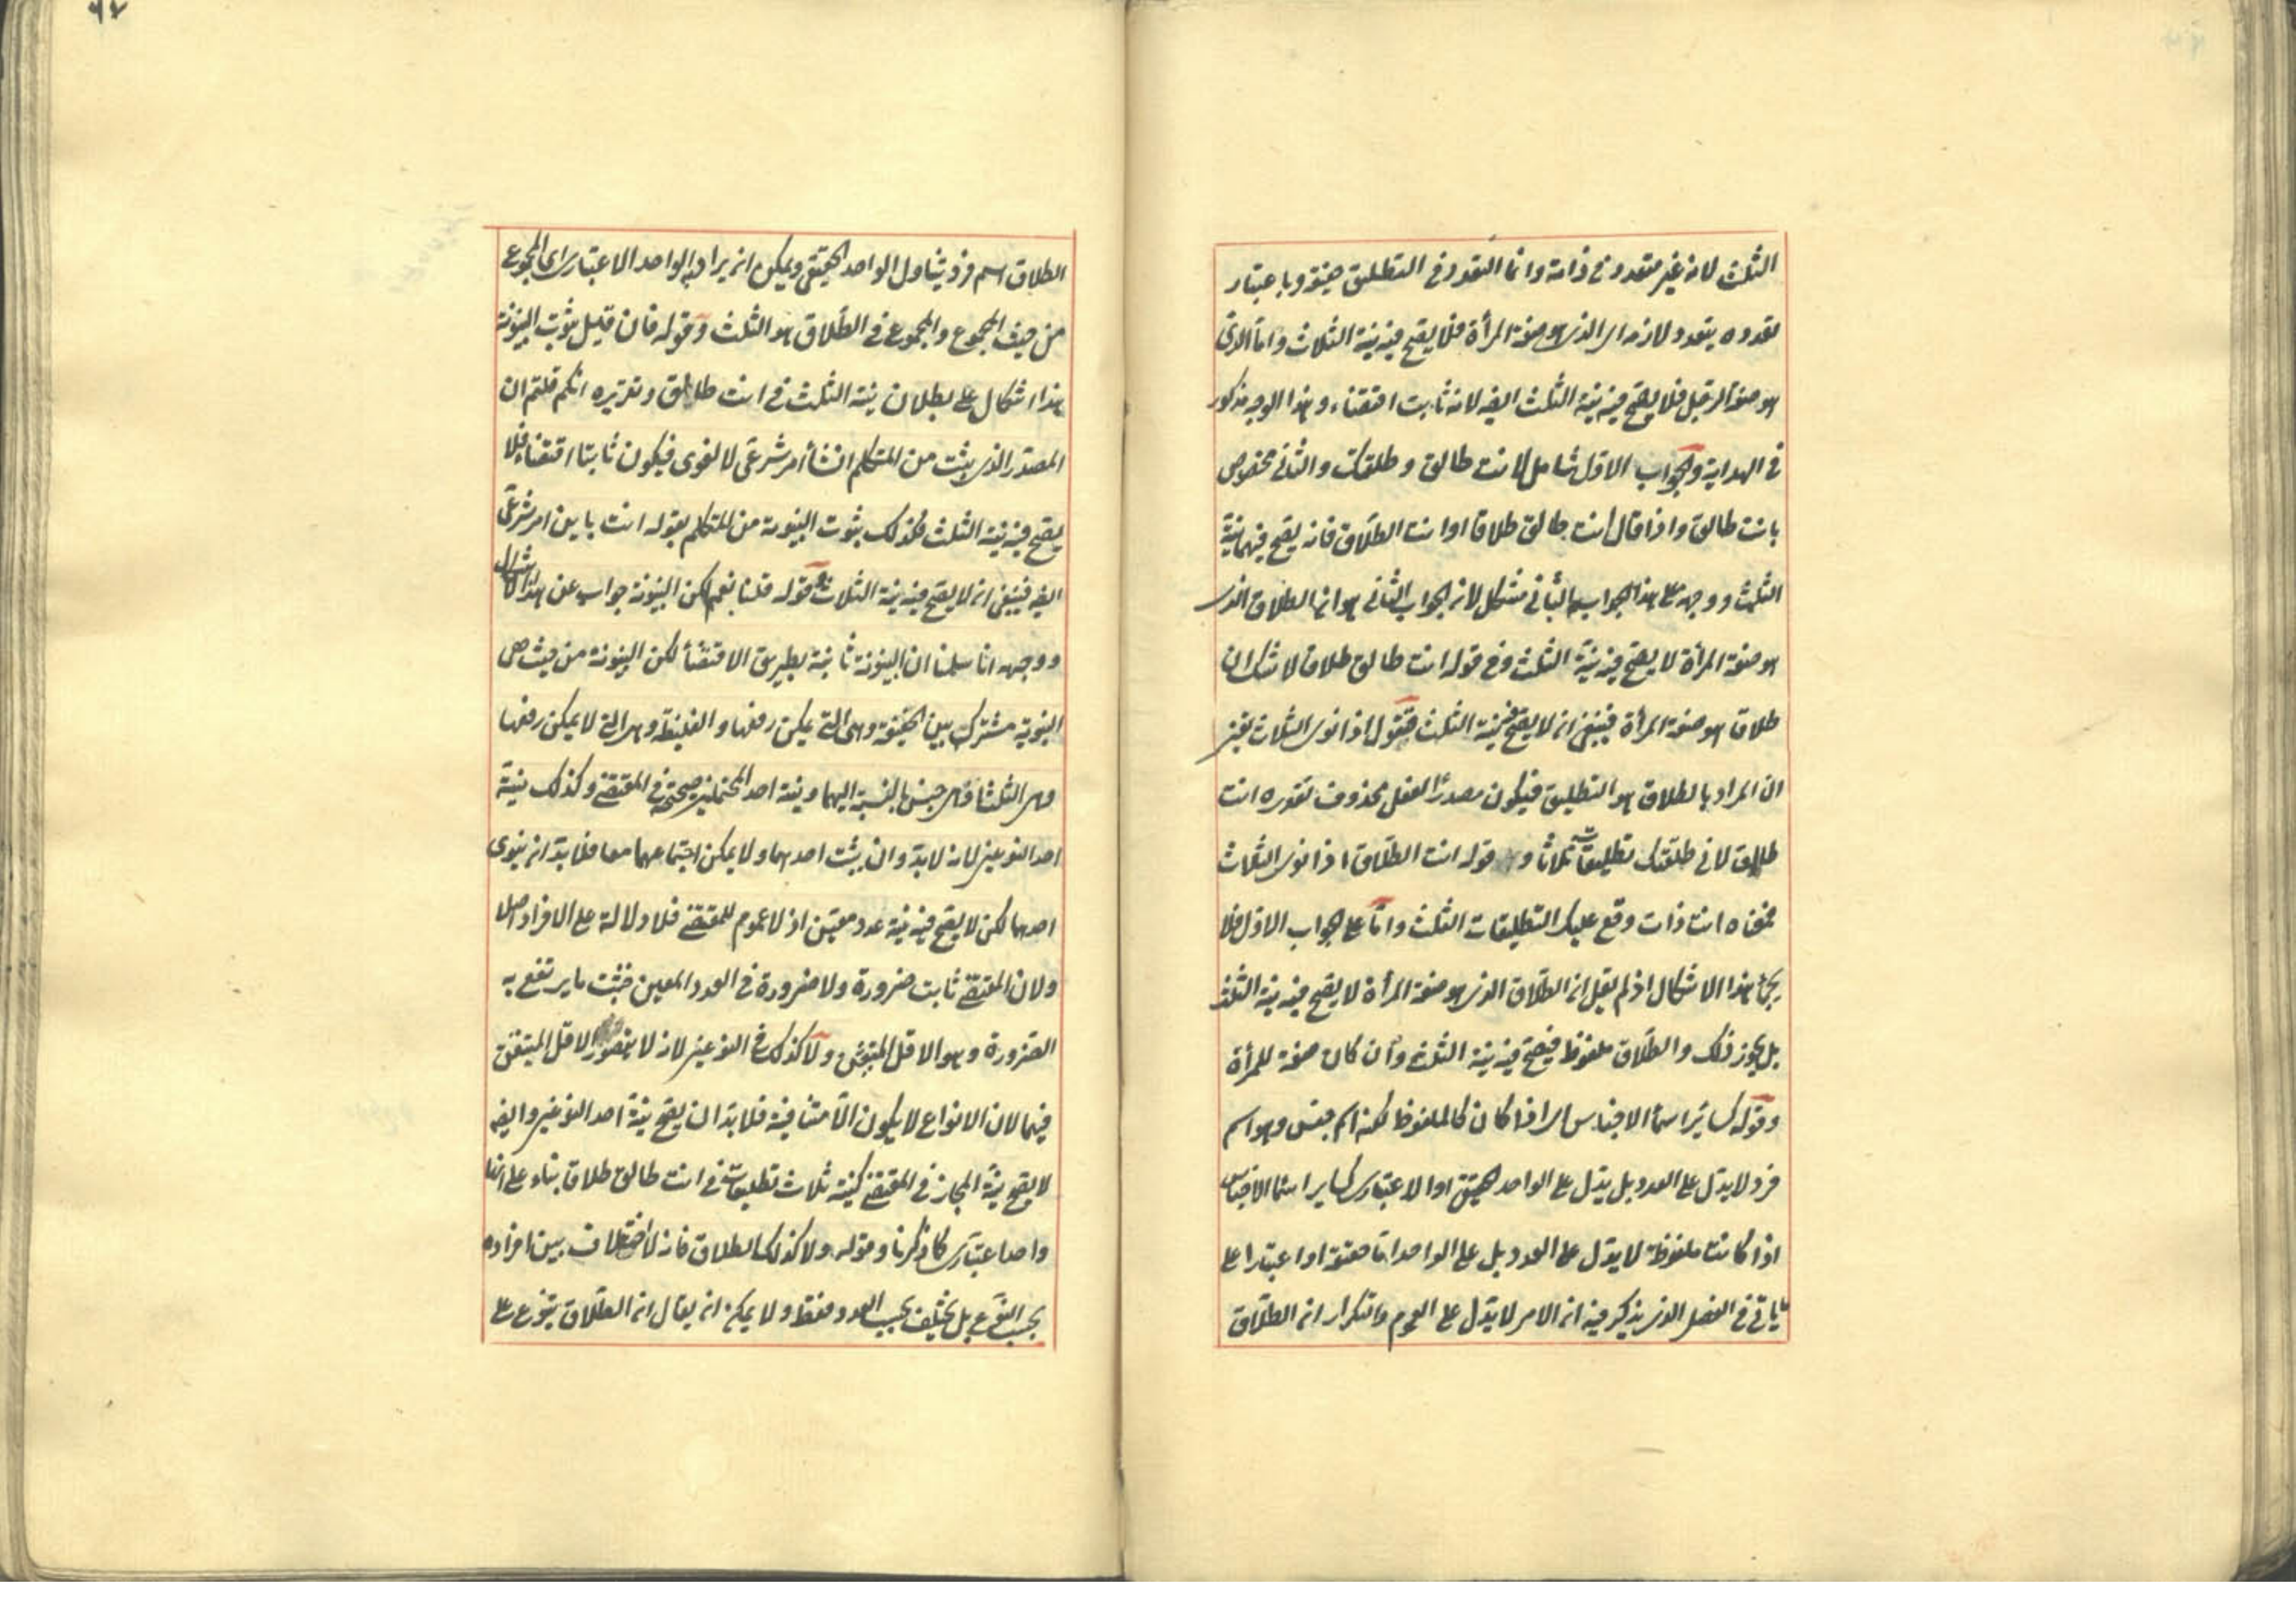 الثلث لانه غير متعدد في ذاته وانما التعدد في التطليق حقيقة وباعتبار
تعدده يتعدد لازمه اى الذى هو صفة المرأة فلا يصح فيه نية الثلاث واما الذى
هو صفة الرجل فلا يصح فيه نية الثلث ايضا لانه ثابت اقتضاء وهذا الوجه مذكور
فى الهداية والجواب الاول شامل لانت طالق وطلقتك والثانى مخصوص
بانت طالق واذا قال انت طالق طلاقا او انت الطلاق فانه يصح فيهما نية
الثلث ووجهه على هذا الجواب الثانى مشكل لان الجواب الثانى هو ان الطلاق الذى
هو صفة المرأة لا يصح فيه نية الثلث وفى قوله انت طالق طلاقا لا شك ان
طلاقا هو صفة المرأة فينبغى ان لا يصح فيه نية الثلث فنقول اذا نوى الثلاث تعين
ان المراد بالطلاق هو التطليق فيكون مصدرا لفعل محذوف تقديره انت
طالق لانى طلقتك تطليقات ثلاثا و قوله انت الطلاق اذا نوى الثلاث
فمعناه انت ذات وقع عليك التطليقات الثلث واما على الجواب الاول فلا
يجئ هذا الاشكال اذ لم يقل ان الطلاق الذى هو صفة المرأة لا يصح فيه نية الثلث
بل يجوز ذلك والطلاق ملفوظ فيصح فيه نية الثلث وان كان صفة للمرأة
وقوله كسائر اسماء الاجناس اى اذا كان كالملفوظ لكنه اسم جنس وهو اسم
فرد لا يدل على العدد بل يدل على الواحد الحقيقى او الاعتبارى كسائر اسماء الاجناس
اذا كانت ملفوظة لا يدل على العدد بل على الواحد اما حقيقة او اعتبارا على
ما يأتى فى الفصل الذى يذكر فيه ان الامر لا يدل على العموم والتكرار ان الطلاق
٩٧
الطلاق اسم فرد يتناول الواحد الحقيقى ويمكن ان يراد به الواحد الاعتبارى اى المجموع
من حيث المجموع والمجموع فى الطلاق هو الثلث وقوله فان قيل ثبوت البينونة
هذا اشكال على بطلان نية الثلث فى انت طالق وتقريره انكم قلتم ان
المصدر الذى يثبت من المتكلم انشاء امر شرعى لا لغوى فيكون ثابتا اقتضاء فلا
يصح فيه نية الثلث فكذلك ثبوت البينونة من المتكلم بقوله انت باين امر شرعى
ايضا فينبغى ان لا يصح فيه نية الثلاث قوله قلنا نعم لكن البينونة جواب عن هذا الاشكال
ووجهه انا سلمنا ان البينونة ثابتة بطريق الاقتضاء لكن البينونة من حيث هى
البينونة مشترك بين الخفيفة وهى التى يمكن رفعها والغليظة وهى التى لا يمكن رفعها
وهى الثلث او هى جنس بالنسبة اليهما ونية احد المحتملين صحيحة فى المقتضى وكذلك نية
احد النوعين لانه لا بد وان يثبت احدهما ولا يمكن اجتماعهما معا فلا بد ان ينوى
احدهما لكن لا يصح فيه نية عدد معين اذ لا عموم للمقتضى فلا دلالة على الافراد اصلا
ولان المقتضى ثابت ضرورة ولا ضرورة فى العدد المعين فيثبت ما يرتفع به
الضرورة وهو الاقل المتيقن ولا كذلك فى النوعين لانه لا يتصور الاقل المتيقن
فيهما لان الانواع لا يكون الا متنافية فلا بد ان يصح نية احد النوعين وايضا
لا يصح نية المجاز فى المقتضى كنية ثلاث تطليقات فى انت طالق طلاقا بناء على انها
واحد اعتبارى كما ذكرنا وقوله ولا كذلك الطلاق فانه لا اختلاف بين افراده
بحسب النوع بل يختلف بحسب العدد فقط ولا يمكن ان يقال ان الطلاق يتنوع على